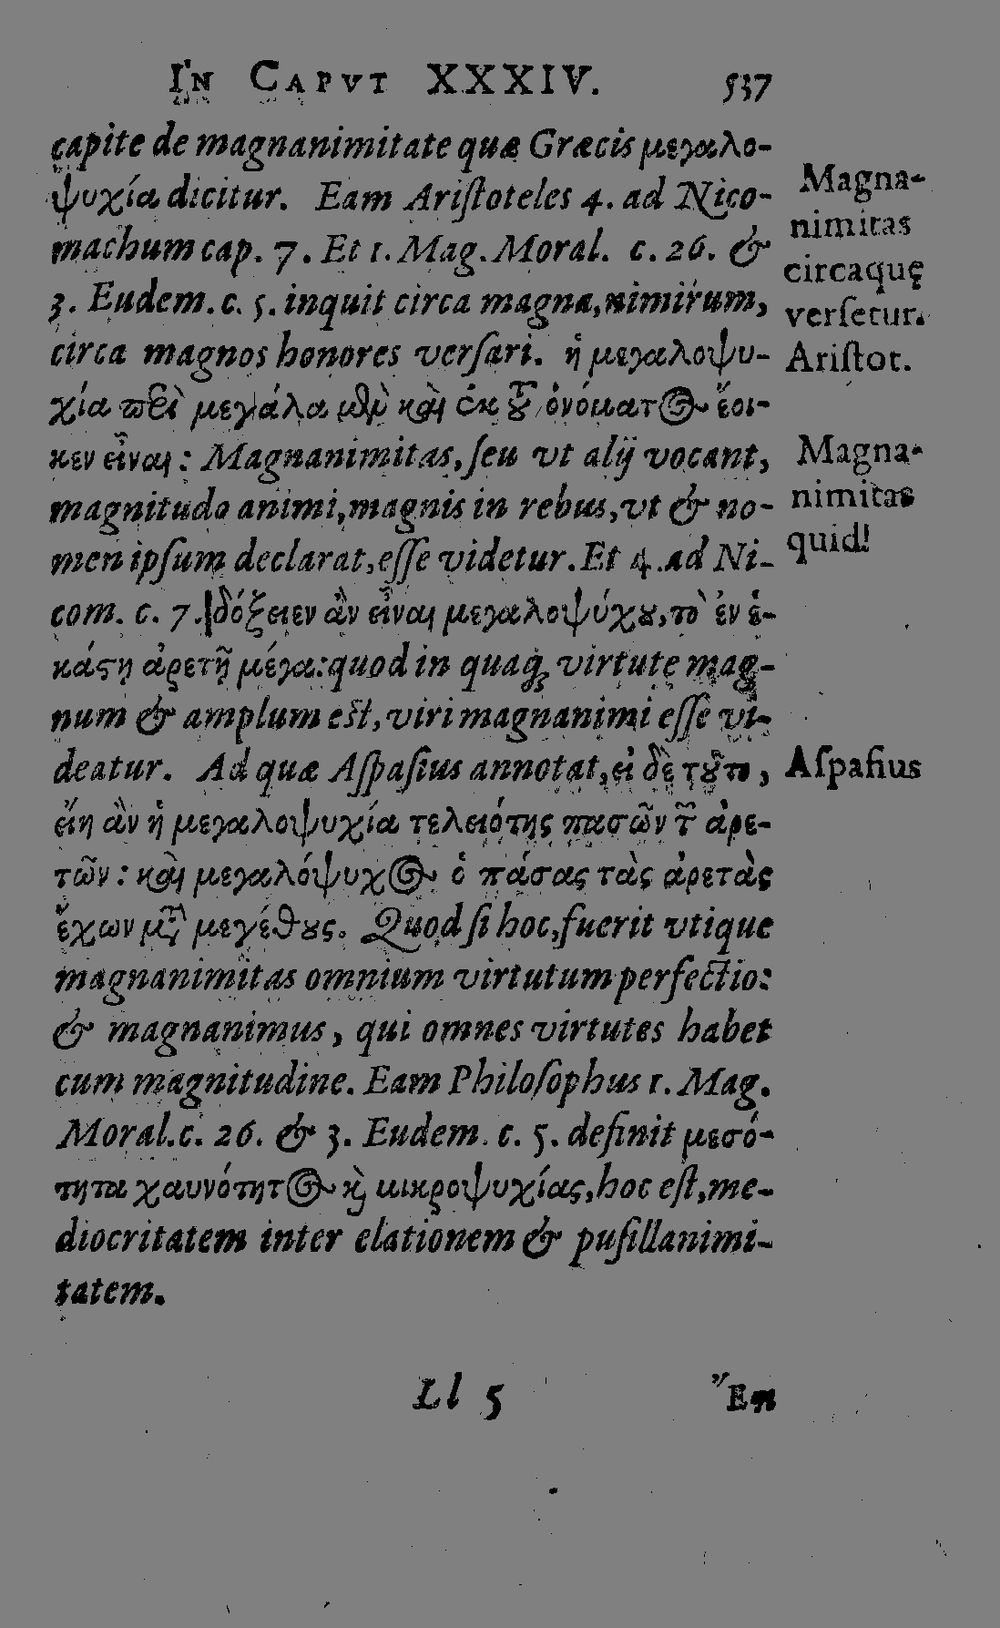 IN CAPVT XXXIV. 537
capite de magnanimitate quæ Græcis μεγαλο-
ψυχία dicitur. Eam Ariſtoteles 4. ad Nico-
machum cap. 7. Et 1. Mag. Moral. c. 26. &
3. Eudem. c. 5. inquit circa magna, nimirum,
circa magnos honores verſari. ἡ μεγαλοψυ-
χία περὶ μεγάλα μὲν καὶ ἐκ τοῦ ὀνόματος ἔοι-
κεν εἶναι: Magnanimitas, ſeu vt alij vocant,
magnitudo animi, magnis in rebus, vt & no-
men ipſum declarat, eſſe videtur. Et 4. ad Ni-
com. c. 7. δόξειεν ἂν εἶναι μεγαλοψύχȣ, τὸ ἐν ἑ-
κάϛῃ ἀρετῇ μέγα: quod in quaq; virtute mag-
num & amplum eſt, viri magnanimi eſſe vi-
deatur. Ad quæ Aſpaſius annotat, εἰ δὲ τȣ̃το,
εἴη ἂν ἡ μεγαλοψυχία τελειότης πασῶν τῶν ἀρε-
τῶν: καὶ μεγαλόψυχος ὁ πάσας τὰς ἀρετὰς
ἔχων μετὰ μεγέθȣς. Quod ſi hoc, fuerit vtique
magnanimitas omnium virtutum perfectio:
& magnanimus, qui omnes virtutes habet
cum magnitudine. Eam Philoſophus 1. Mag.
Moral. c. 26. & 3. Eudem. c. 5. definit μεσό-
τητα χαυνότητος κ̀ μικροψυχίας, hoc eſt, me-
diocritatem inter elationem & puſillanimi-
tatem.
Ll 5 Ἔπ
Magna-
nimitas
circaquę
verſetur.
Ariſtot.
Magna-
nimitas
quid!
Aſpaſius